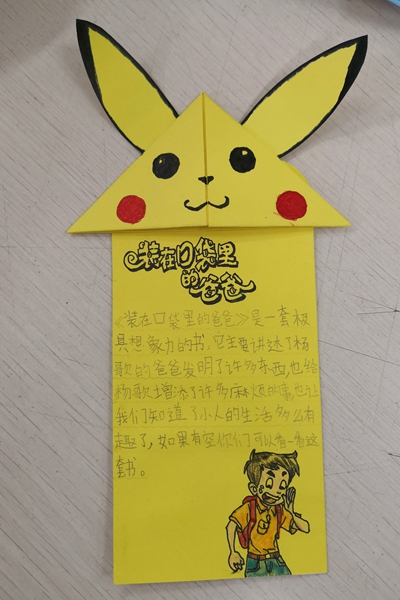 装在口袋里
的爸爸
《装在口袋里的爸爸》是一套极
具想象力的书,它主要讲述了杨
歌的爸爸发明了许多东西,也给
杨歌增添了许多麻烦的事,也让
我们知道了小人的生活多么有
趣了,如果有空你们可以看一看这
套书。